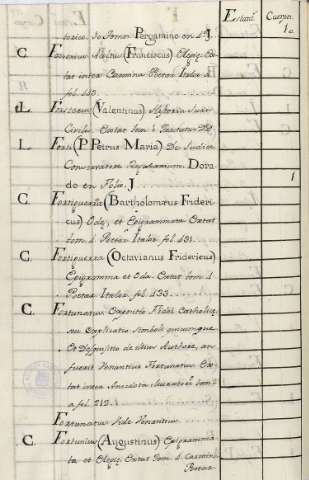 Estant. Cuerpo.
torico. de Tomas Peregrino en 4º J. 1o.
C. Fortenius (Franciscus) Elegiæ. Extat
tat intra Carmina Poetar. Italor. t.
fol. 443.
L. Forsterus (Valentinus) Historia Juris
Civilis. Extat tom. 1 Tractat.
L. Forti (P. Petrus Maria) De Iudice
Conservatore Regularium. Dorado
do en Folio. J. 1
C. Fortiguerra (Bartholomæus Frideri
cus) Odæ, et Epigrammata. Extat
tom. 4. Poetar. Italor. fol. 491.
C. Fortiguerra (Octavianus Fridericus)
Epigramma et Oda. Extat tom. 4.
Poetar. Italor. fol. 433.
C. Fortunatus Expositio Fidei Catholicæ,
seu Explicatio Simboli quicumque.
Et Disquisitio de illius Authore, an
fuerit Venantius Fortunatus. Ex
tat intra Anecdota Muratorii tom. 2
a fol. 212.
Fortunatus Vide Venantius.
C. Fortunius (Augustinus) Epigramma
ta et Elegiæ. Extat Tom. 4. Carmin.
Poetar.